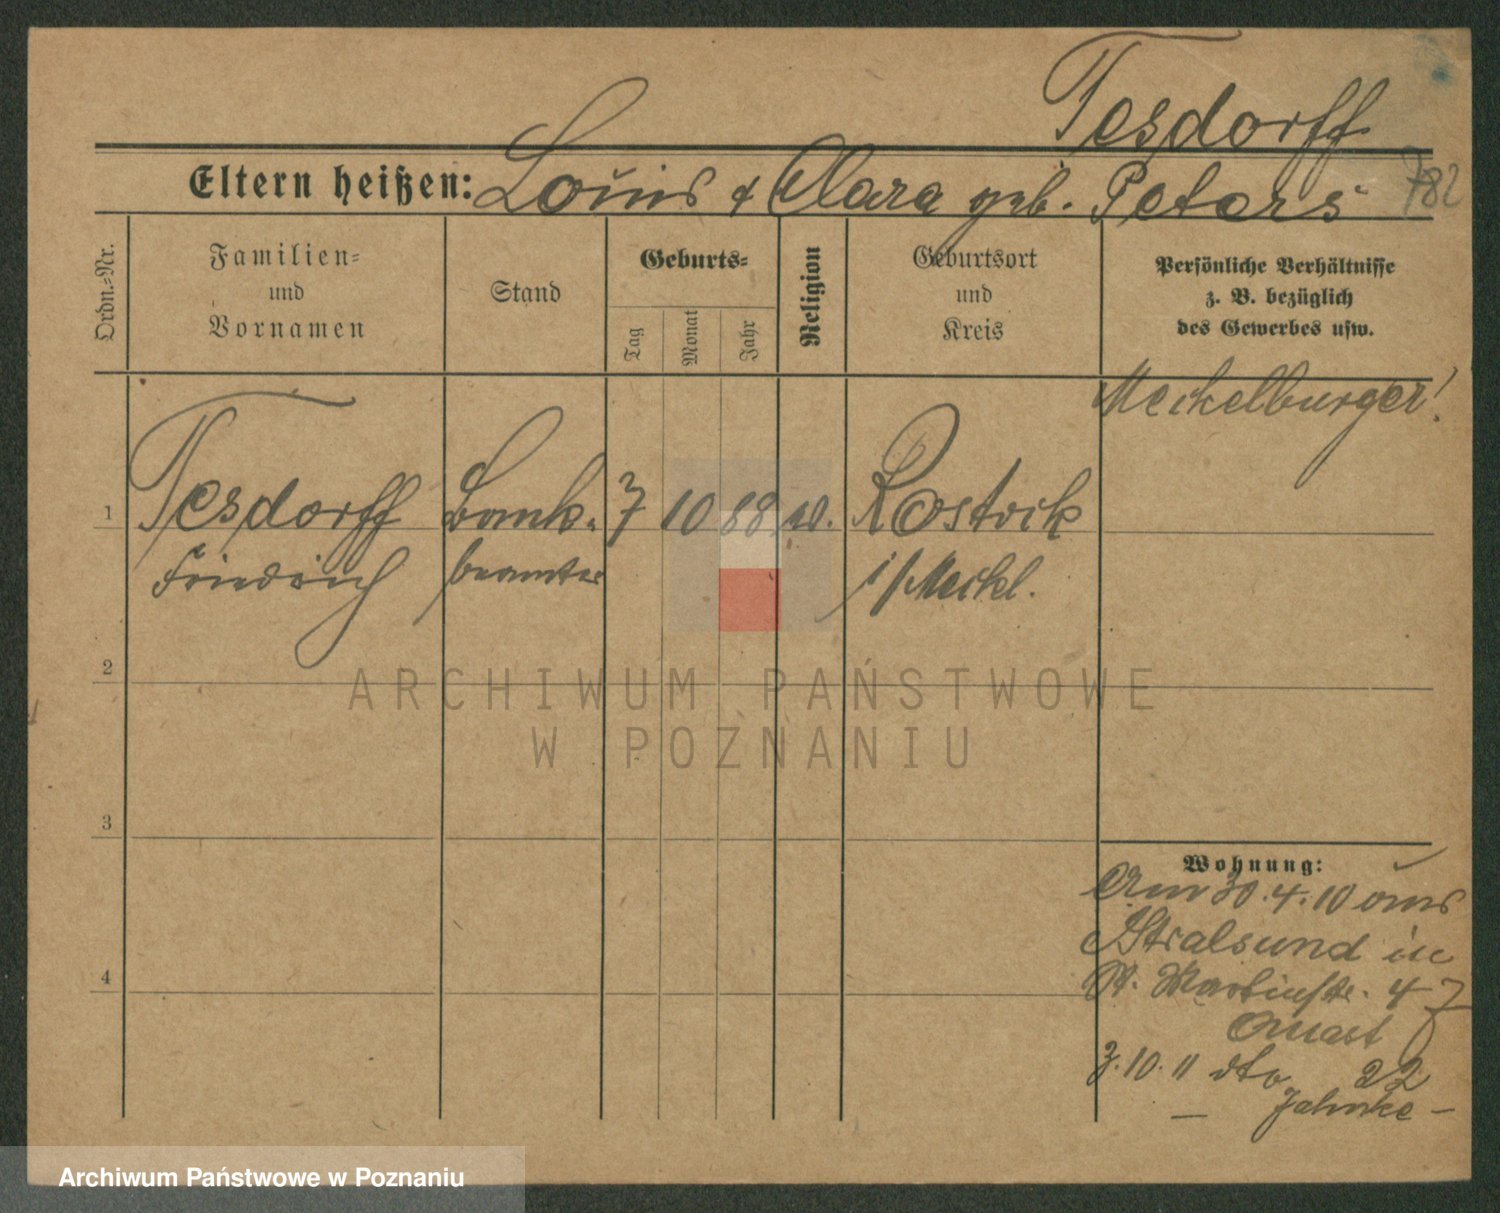 Tesdorff
782
Eltern heißen: Louis & Clara geb. Peters
Ordn.-Nr.
Familien-
und
Vornamen
Stand
Geburts-
Tag
Monat
Jahr
Religion
Geburtsort
und
Kreis
Persönliche Verhältnisse
z. B. bezüglich
des Gewerbes usw.
Meckelburger!
1
Tesdorff
Friedrich
Bank-
beamter
7
10
88
Rostock
i/Meckl.
2
3
4
Wohnung:
Am 30.4.10 aus
Stralsund in
St. Martinstr. 47
Quast
3.10.11 dto 22
Jahnke
ARCHIWUM PAŃSTWOWE
W POZNANIU
Archiwum Państwowe w Poznaniu